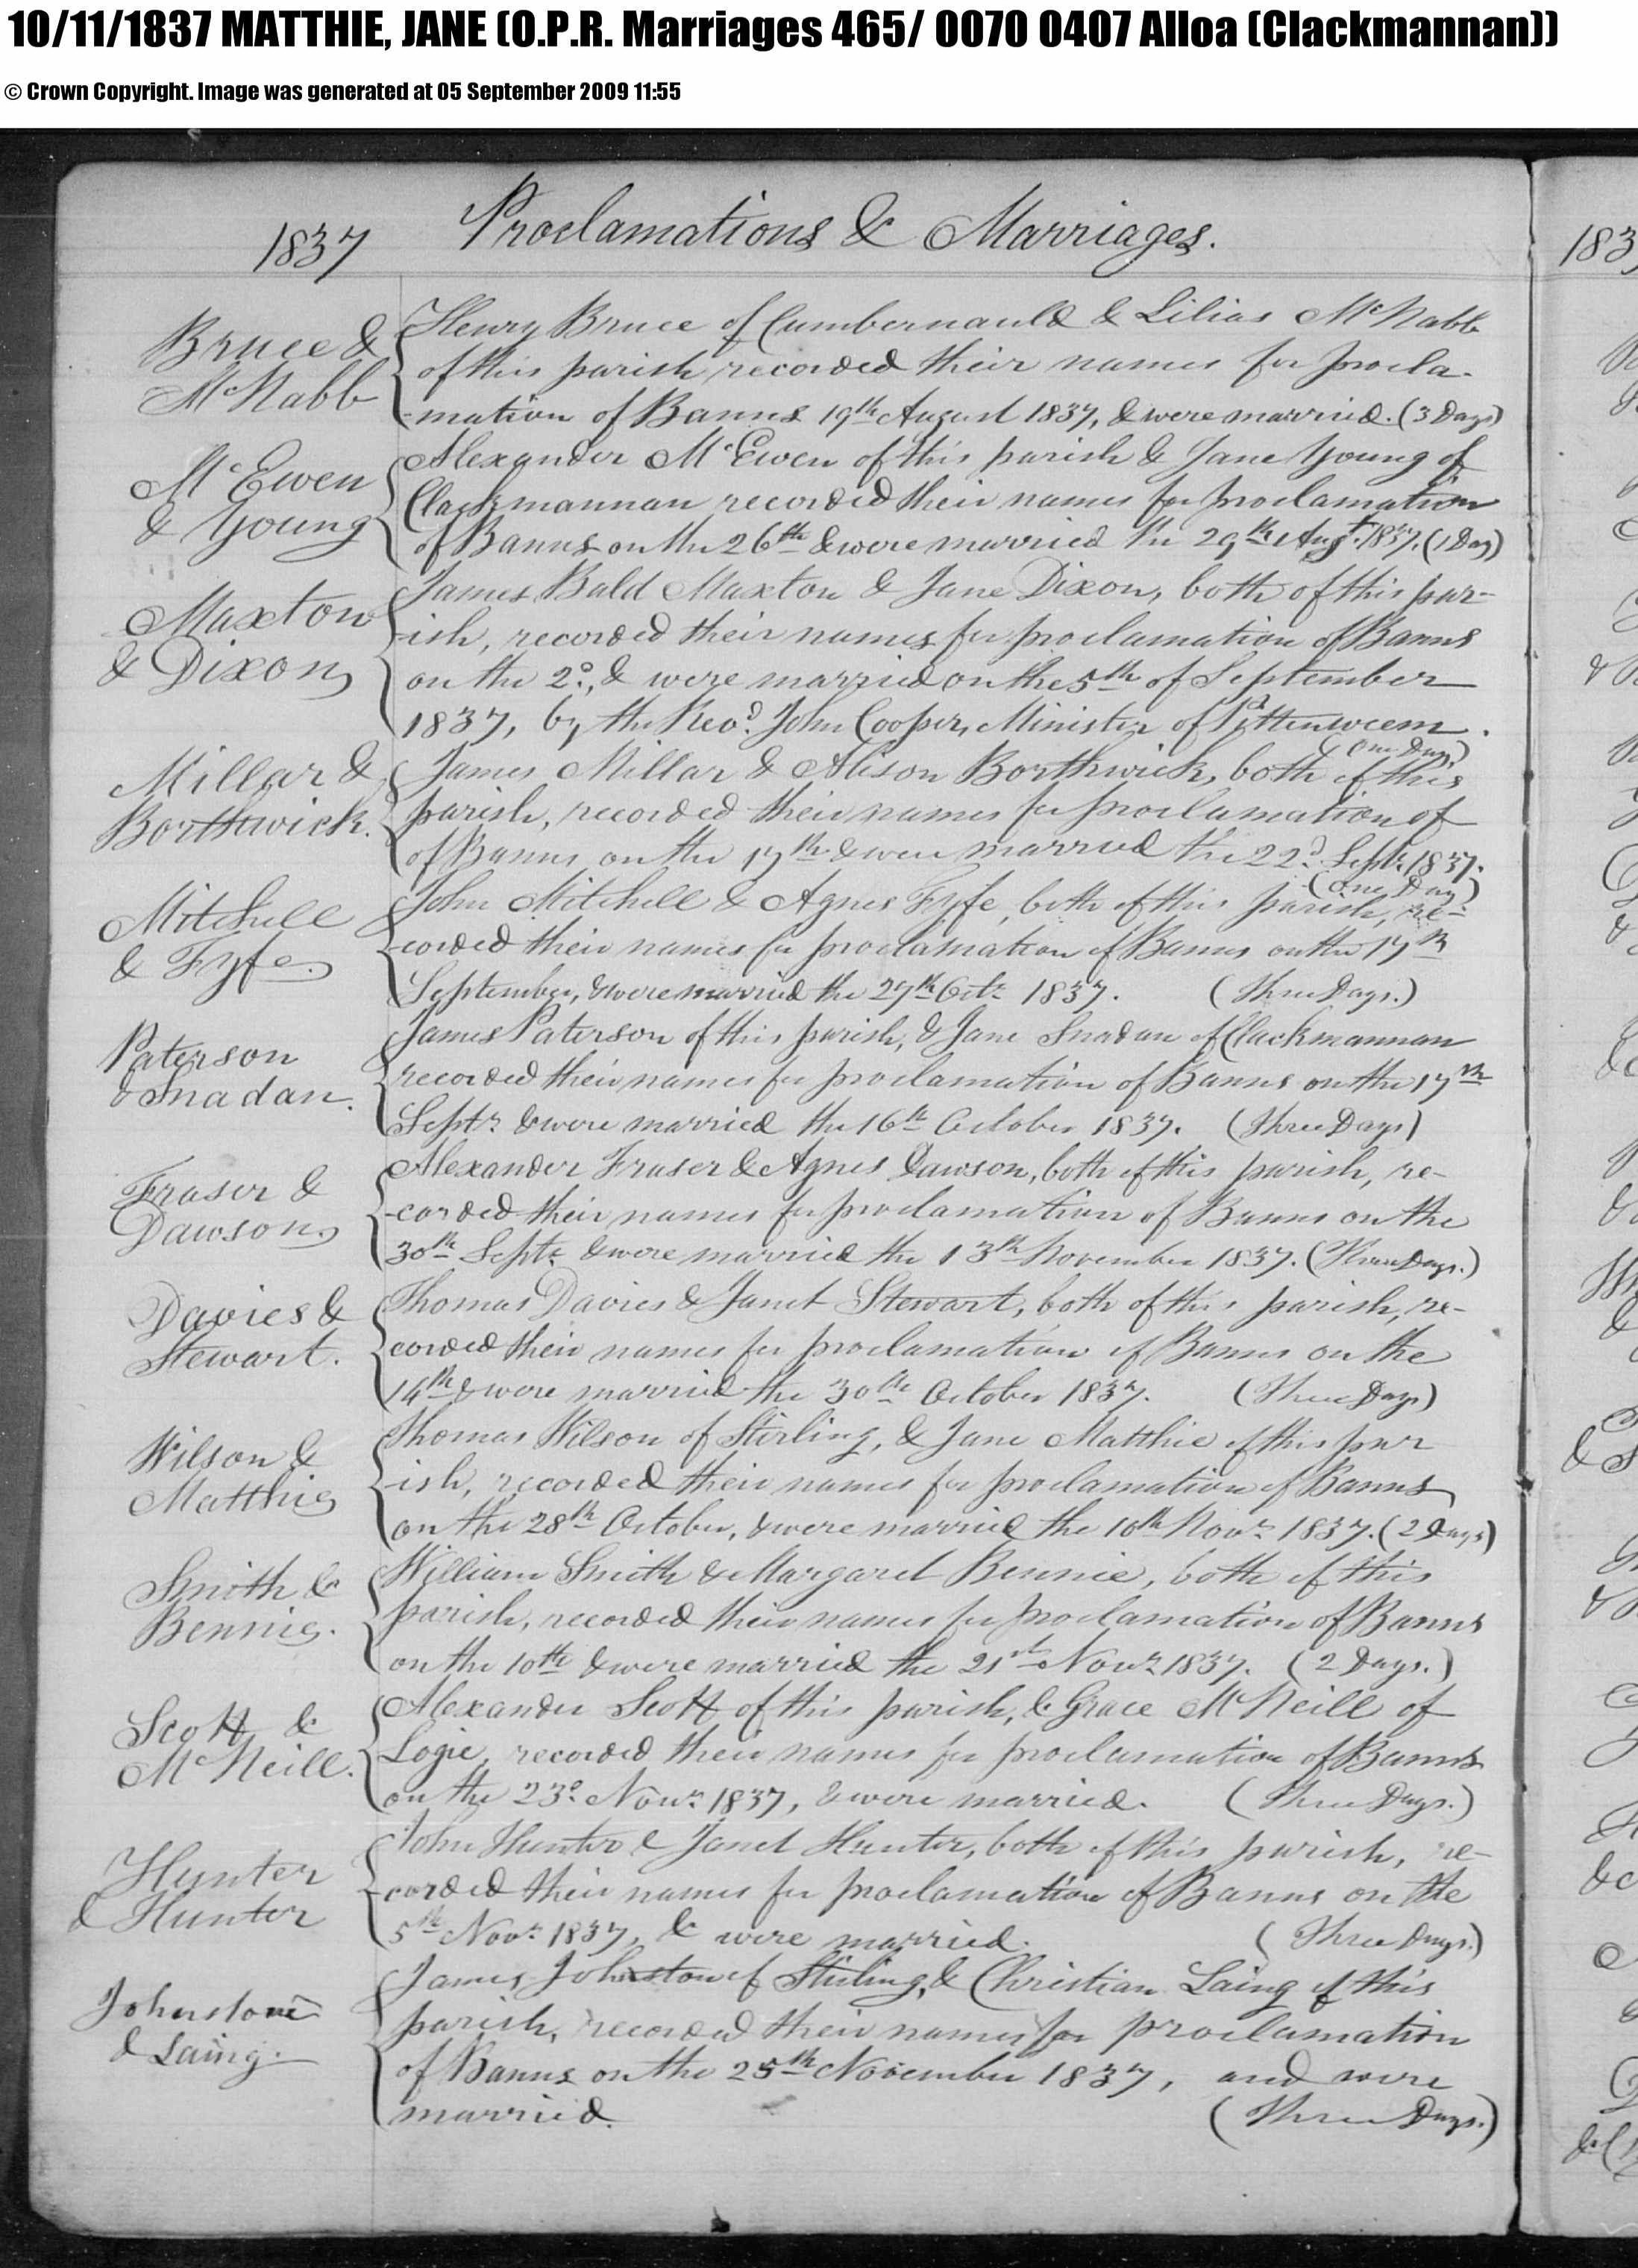 10/11/1837 MATTHIE, JANE (O.P.R. Marriages 465/ 0070 0407 Alloa (Clackmannan))
© Crown Copyright. Image was generated at 05 September 2009 11:55
1837 Proclamations & Marriages.
183
Bruce &
McNabb
Henry Bruce of Cumbernauld & Lilias McNabb
of this parish recorded their names for procla-
-mation of Banns 19th August 1837, & were married. (3 Days)
McEwen
& Young
Alexander McEwen of this parish & Jane Young of
Clackmannan recorded their names for proclamation
of Banns on the 26th & were married the 29th Augt. 1837. (1 Day)
Maxton
& Dixon
James Bald Maxton & Jane Dixon, both of this par-
-ish, recorded their names for proclamation of Banns
on the 2d, & were married on the 5th of September
1837, by the Revd. John Cooper, Minister of Pittenweem.
(One Day)
Millar &
Borthwick.
James Millar & Alison Borthwick, both of this
parish, recorded their names for proclamation of
of Banns on the 17th & were married the 22d Septr. 1837.
(One Day)
Mitchell
& Fyfe.
John Mitchell & Agnes Fyfe, both of this parish, re-
corded their names for proclamation of Banns on the 17th
September, & were married the 27th Octr. 1837. (Three Days.)
Paterson
& Snadan.
James Paterson of this parish, & Jane Snadan of Clackmannan
recorded their names for proclamation of Banns on the 17th
Septr. & were married the 16th October 1837. (Three Days)
Fraser &
Dawson
Alexander Fraser & Agnes Dawson, both of this parish, re-
-corded their names for proclamation of Banns on the
30th Septr. & were married the 13th November 1837. (Three Days.)
Davies &
Stewart.
Thomas Davies & Janet Stewart, both of this parish, re-
corded their names for proclamation of Banns on the
14th & were married the 30th October 1837. (Three Days)
Wilson &
Matthie
Thomas Wilson of Stirling, & Jane Matthie of this par
-ish, recorded their names for proclamation of Banns
on the 28th October, & were married the 10th Novr. 1837. (2 Days)
Smith &
Bennie.
William Smith & Margaret Bennie, both of this
parish, recorded their names for proclamation of Banns
on the 10th & were married the 21st Novr. 1837. (2 Days.)
Scott &
McNeill.
Alexander Scott of this parish, & Grace McNeill of
Logie, recorded their names for proclamation of Banns
on the 23d. Novr. 1837, & were married. (Three Days.)
Hunter
& Hunter
John Hunter & Janet Hunter, both of this parish, re-
-corded their names for proclamation of Banns on the
5th Novr. 1837, & were married. (Three Days.)
Johnstone
& Laing.
James Johnston of Stirling, & Christian Laing of this
parish, recorded their names for proclamation
of Banns on the 25th November 1837, and were
married. (Three Days.)